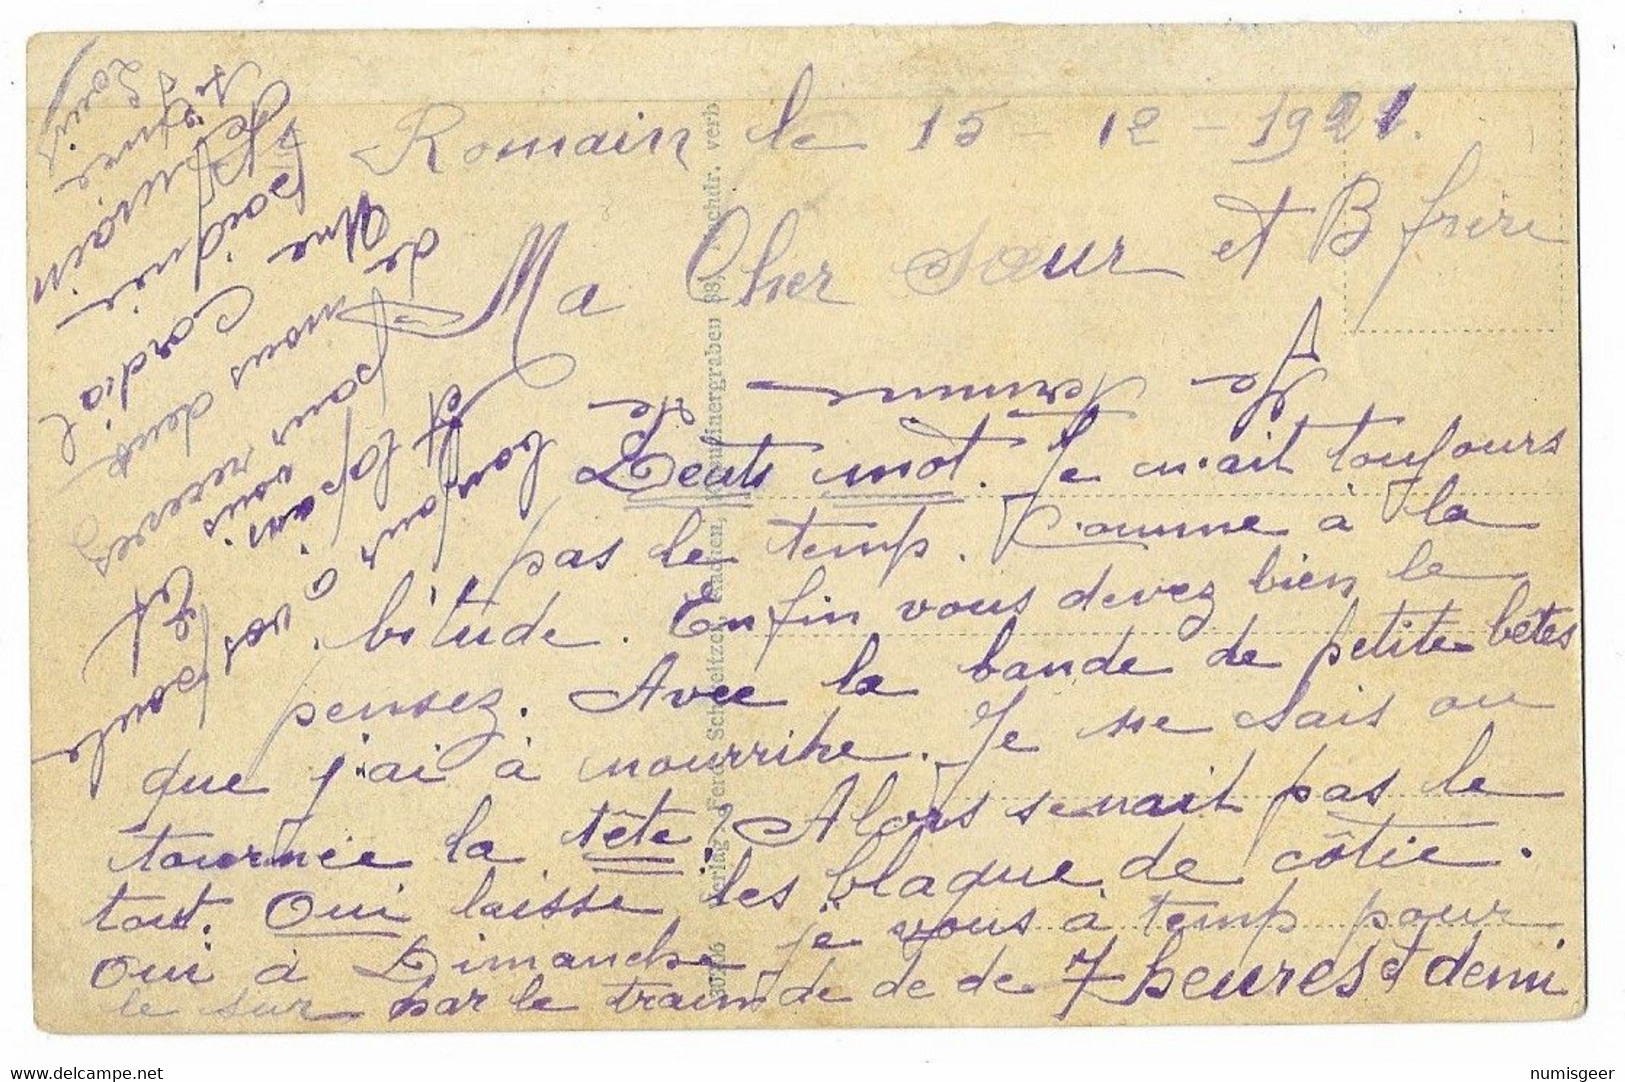 Romain le 15 - 12 - 1921.
Ma Cher sœur et B frère
Deuts mot. Je m'ait toujours
pas le temp. Comme à la
bitude. Enfin vous devez bien le
pensez. Avec la bande de petite bêtes
que j'ai à nourrire. Je ne sais ou
tournée la tête. Alors senait pas le
tout. Oui laisse les blaque de côtie.
Oui à Dimanche je vous à temp pour
le sur par le train de de de 7 heures et demi
Et
bonjour à vos poule
et lapain
pour vous
nous deux
de
Une Cordial
poignée
Louis
Verlag v. Ferd. Schweitzer, Aachen, Kapuzinergraben 38, Nachdr. verb